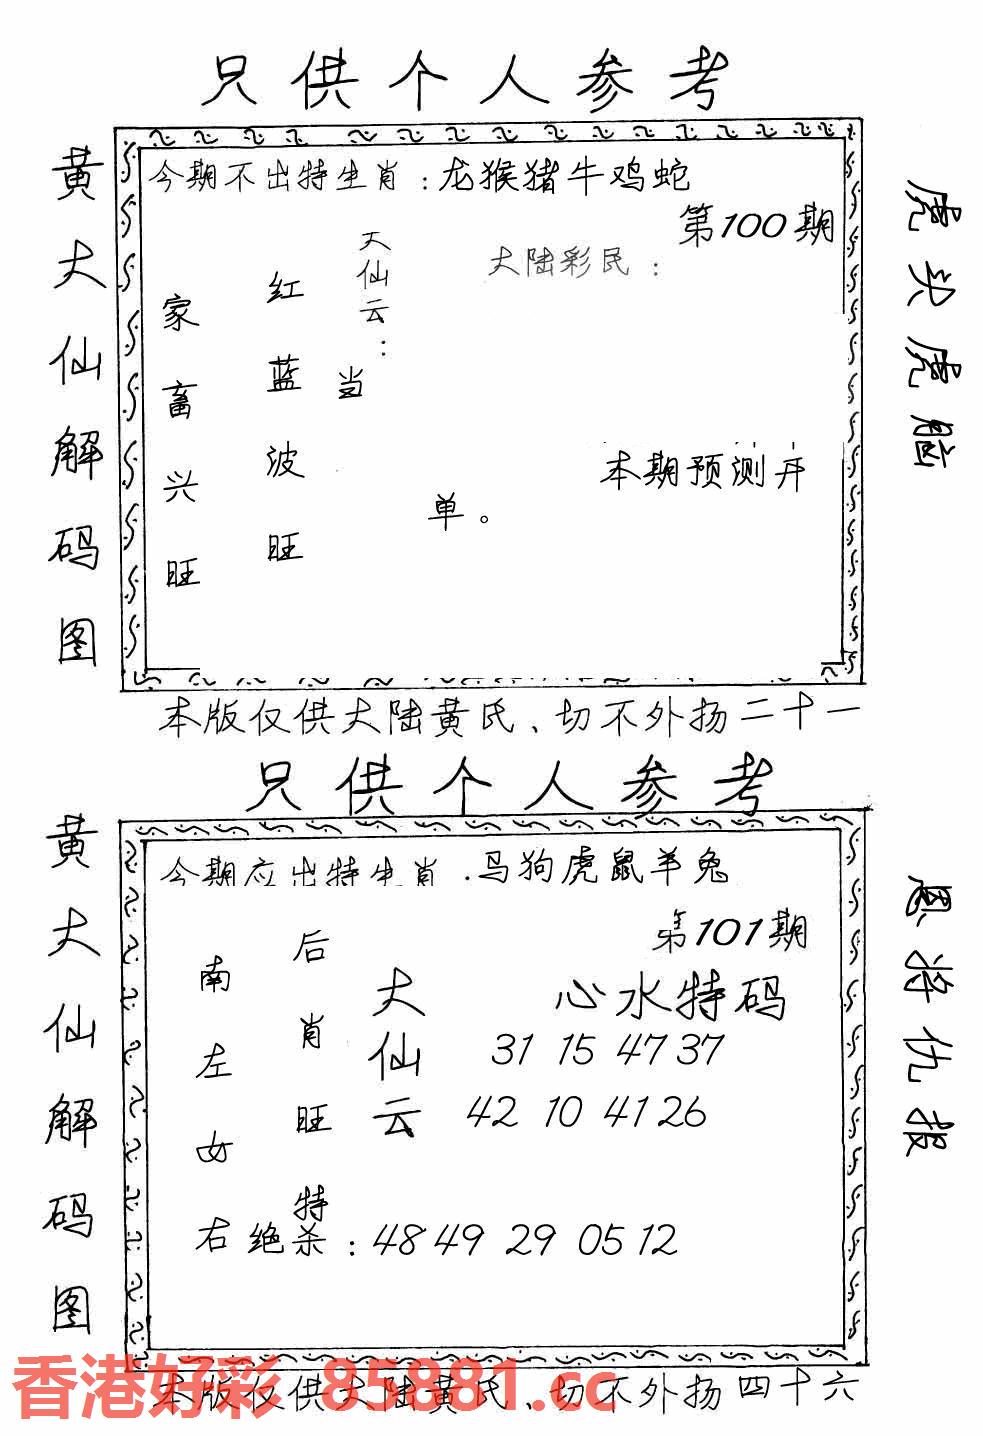 只供个人参考
黄大仙解码图
今期不出特生肖：龙猴猪牛鸡蛇
第100期
大陆彩民：
天仙云：
红蓝波旺
家畜兴旺
当
本期预测开
单。
虎头虎脑
本版仅供大陆黄氏、切不外扬二十一
只供个人参考
黄大仙解码图
今期应出特生肖．马狗虎鼠羊兔
第101期
后肖旺特
南左女右
大仙云
心水特码
31 15 47 37
42 10 41 26
绝杀：48 49 29 05 12
恩将仇报
香港好彩 85881.cc
本版仅供大陆黄氏、切不外扬四十六